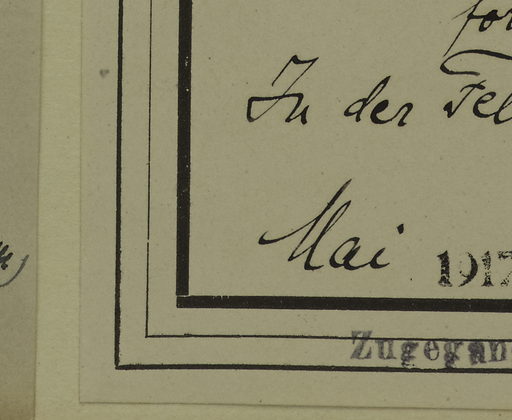 for
In der Fel
Mai 1917
Zugegan